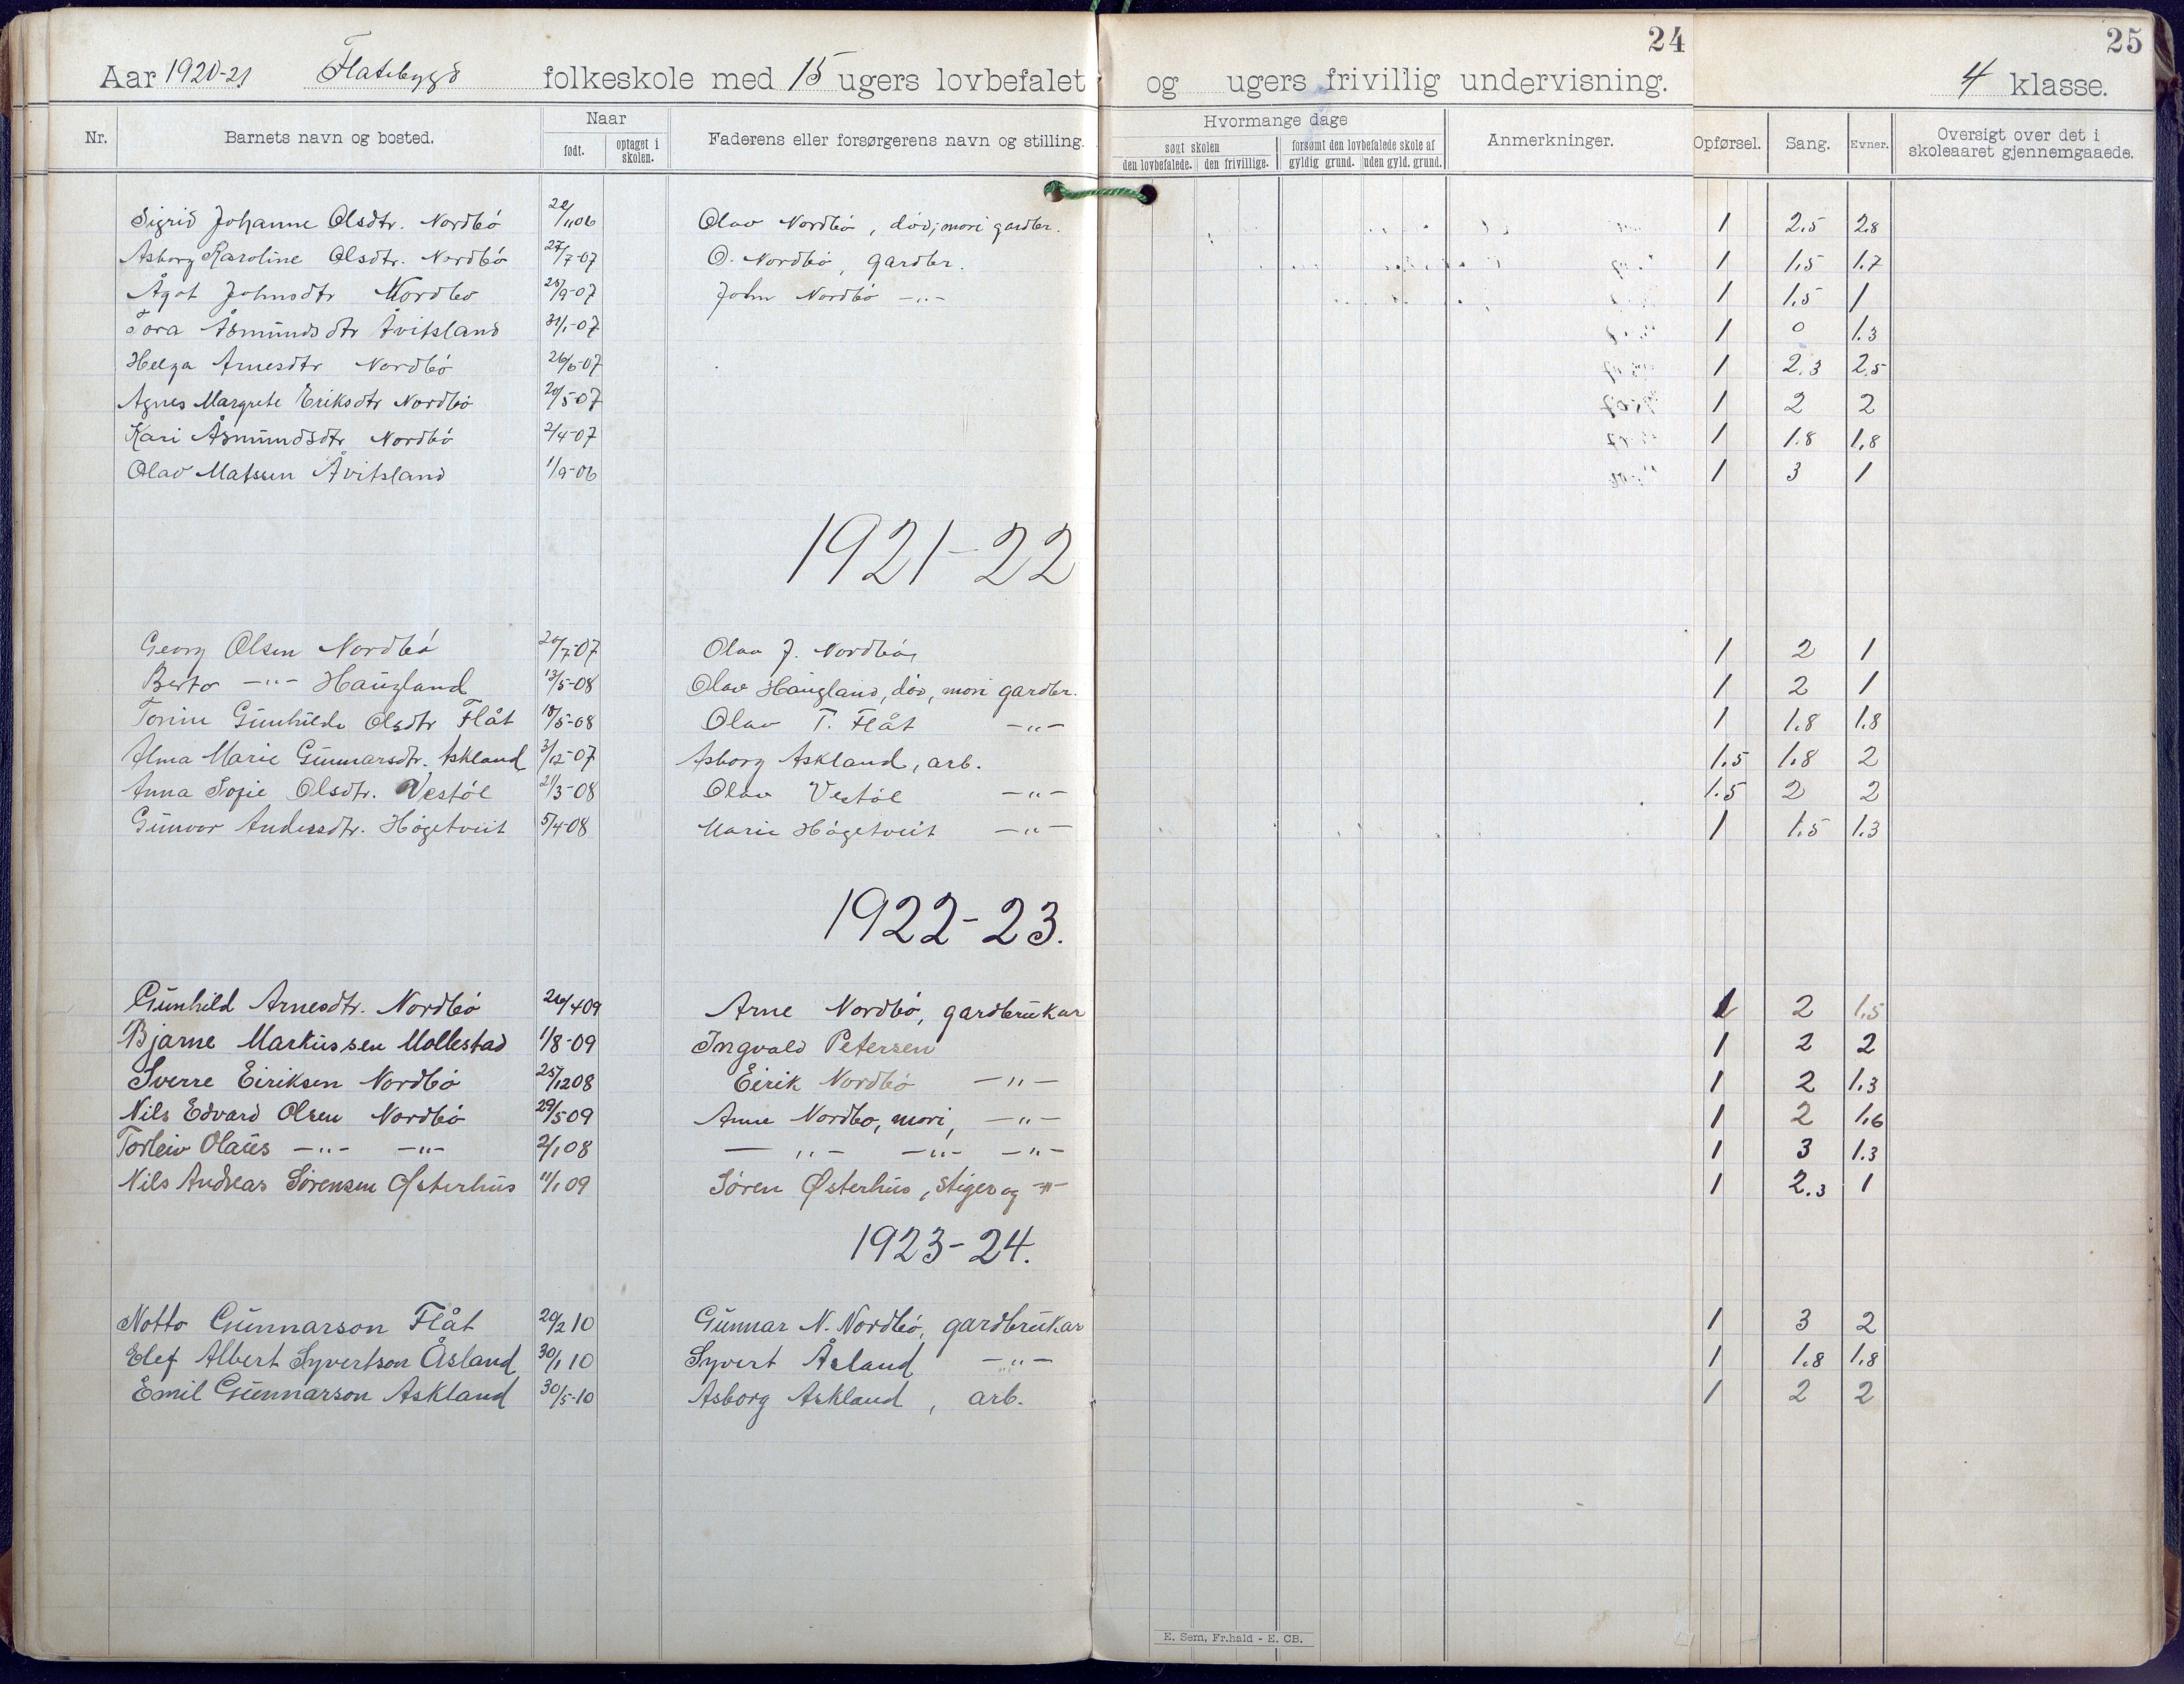 24
25
Aar 1920-21 Flatebygd folkeskole med 15 ugers lovbefalet og ugers frivillig undervisning. 4 klasse.
Nr. Barnets navn og bosted. Naar født. optaget i skolen. Faderens eller forsørgerens navn og stilling. Hvormange dage søgt skolen den lovbefalede. den frivillige. forsømt den lovbefalede skole af gyldig grund. uden gyld. grund. Anmerkninger. Opførsel. Sang. Evner. Oversigt over det i skoleaaret gjennemgaaede.
Sigrid Johanne Olsdtr. Nordbö /11 06 Olav Nordbö, död; mori gardbr. 1 2.5 2.8
Asborg Karoline Olsdtr. Nordbö 27/7-07 O. Nordbö, gardbr. 1 1.5 1.7
Ågot Johnsdtr Nordbö 25/9-07 John Nordbö -"- 1 1.5 1
Tora Åsmundsdtr Åvitsland 31/1-07 1 0 1.3
Helga Arnesdtr Nordbö 26/6-07 1 2.3 2.5
Agnes Margrete Eriksdtr Nordbö 20/5-07 1 2 2
Kari Åsmundsdtr Nordbö 2/4-07 1 1.8 1.8
Olav Matssen Åvitsland 1/9-06 1 3 1
1921-22
Georg Olsen Nordbö 20/7-07 Olav J. Nordbö, 1 2 1
Berto -"- Haugland 13/5-08 Olav Haugland, död, mori gardbr. 1 2 1
Torine Gunhilde Olsdtr Flåt 18/5-08 Olav T. Flåt -"- 1 1.8 1.8
Alma Marie Gunnarsdtr. Askland 3/12-07 Asborg Askland, arb. 1.5 1.8 2
Anna Sofie Olsdtr. Vestöl 21/3-08 Olav Vestöl -"- 1.5 2 2
Gunvor Andersdtr. Högetveit 5/4-08 Marie Högetveit -"- 1 1.5 1.3
1922-23.
Gunhild Arnesdtr. Nordbö 26/4 09 Arne Nordbö, gardbrukar 1 2 1.5
Bjarne Markussen Mollestad 1/8-09 Ingvald Petersen 1 2 2
Sverre Eiriksen Nordbö 25/12 08 Eirik Nordbö -"- 1 2 1.3
Nils Edvard Olsen Nordbö 29/5 09 Anne Nordbö, mori, -"- 1 2 1.6
Torleiv Olaus -"- -"- 2/1 08 -"- -"- -"- 1 3 1.3
Nils Andreas Sörensen Østerhus 11/1 09 Sören Østerhus, stiger og -"- 1 2.3 1
1923-24.
Notto Gunnarson Flåt 20/2 10 Gunnar N. Nordbö, gardbrukar 1 3 2
Elef Albert Syvertson Åsland 30/1 10 Syvert Åsland -"- 1 1.8 1.8
Emil Gunnarson Askland 30/5-10 Asborg Askland, arb. 1 2 2
E. Sem, Fr.hald - E. CB.